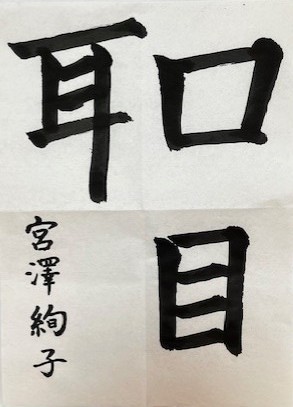 口目
耳
宮澤絢子